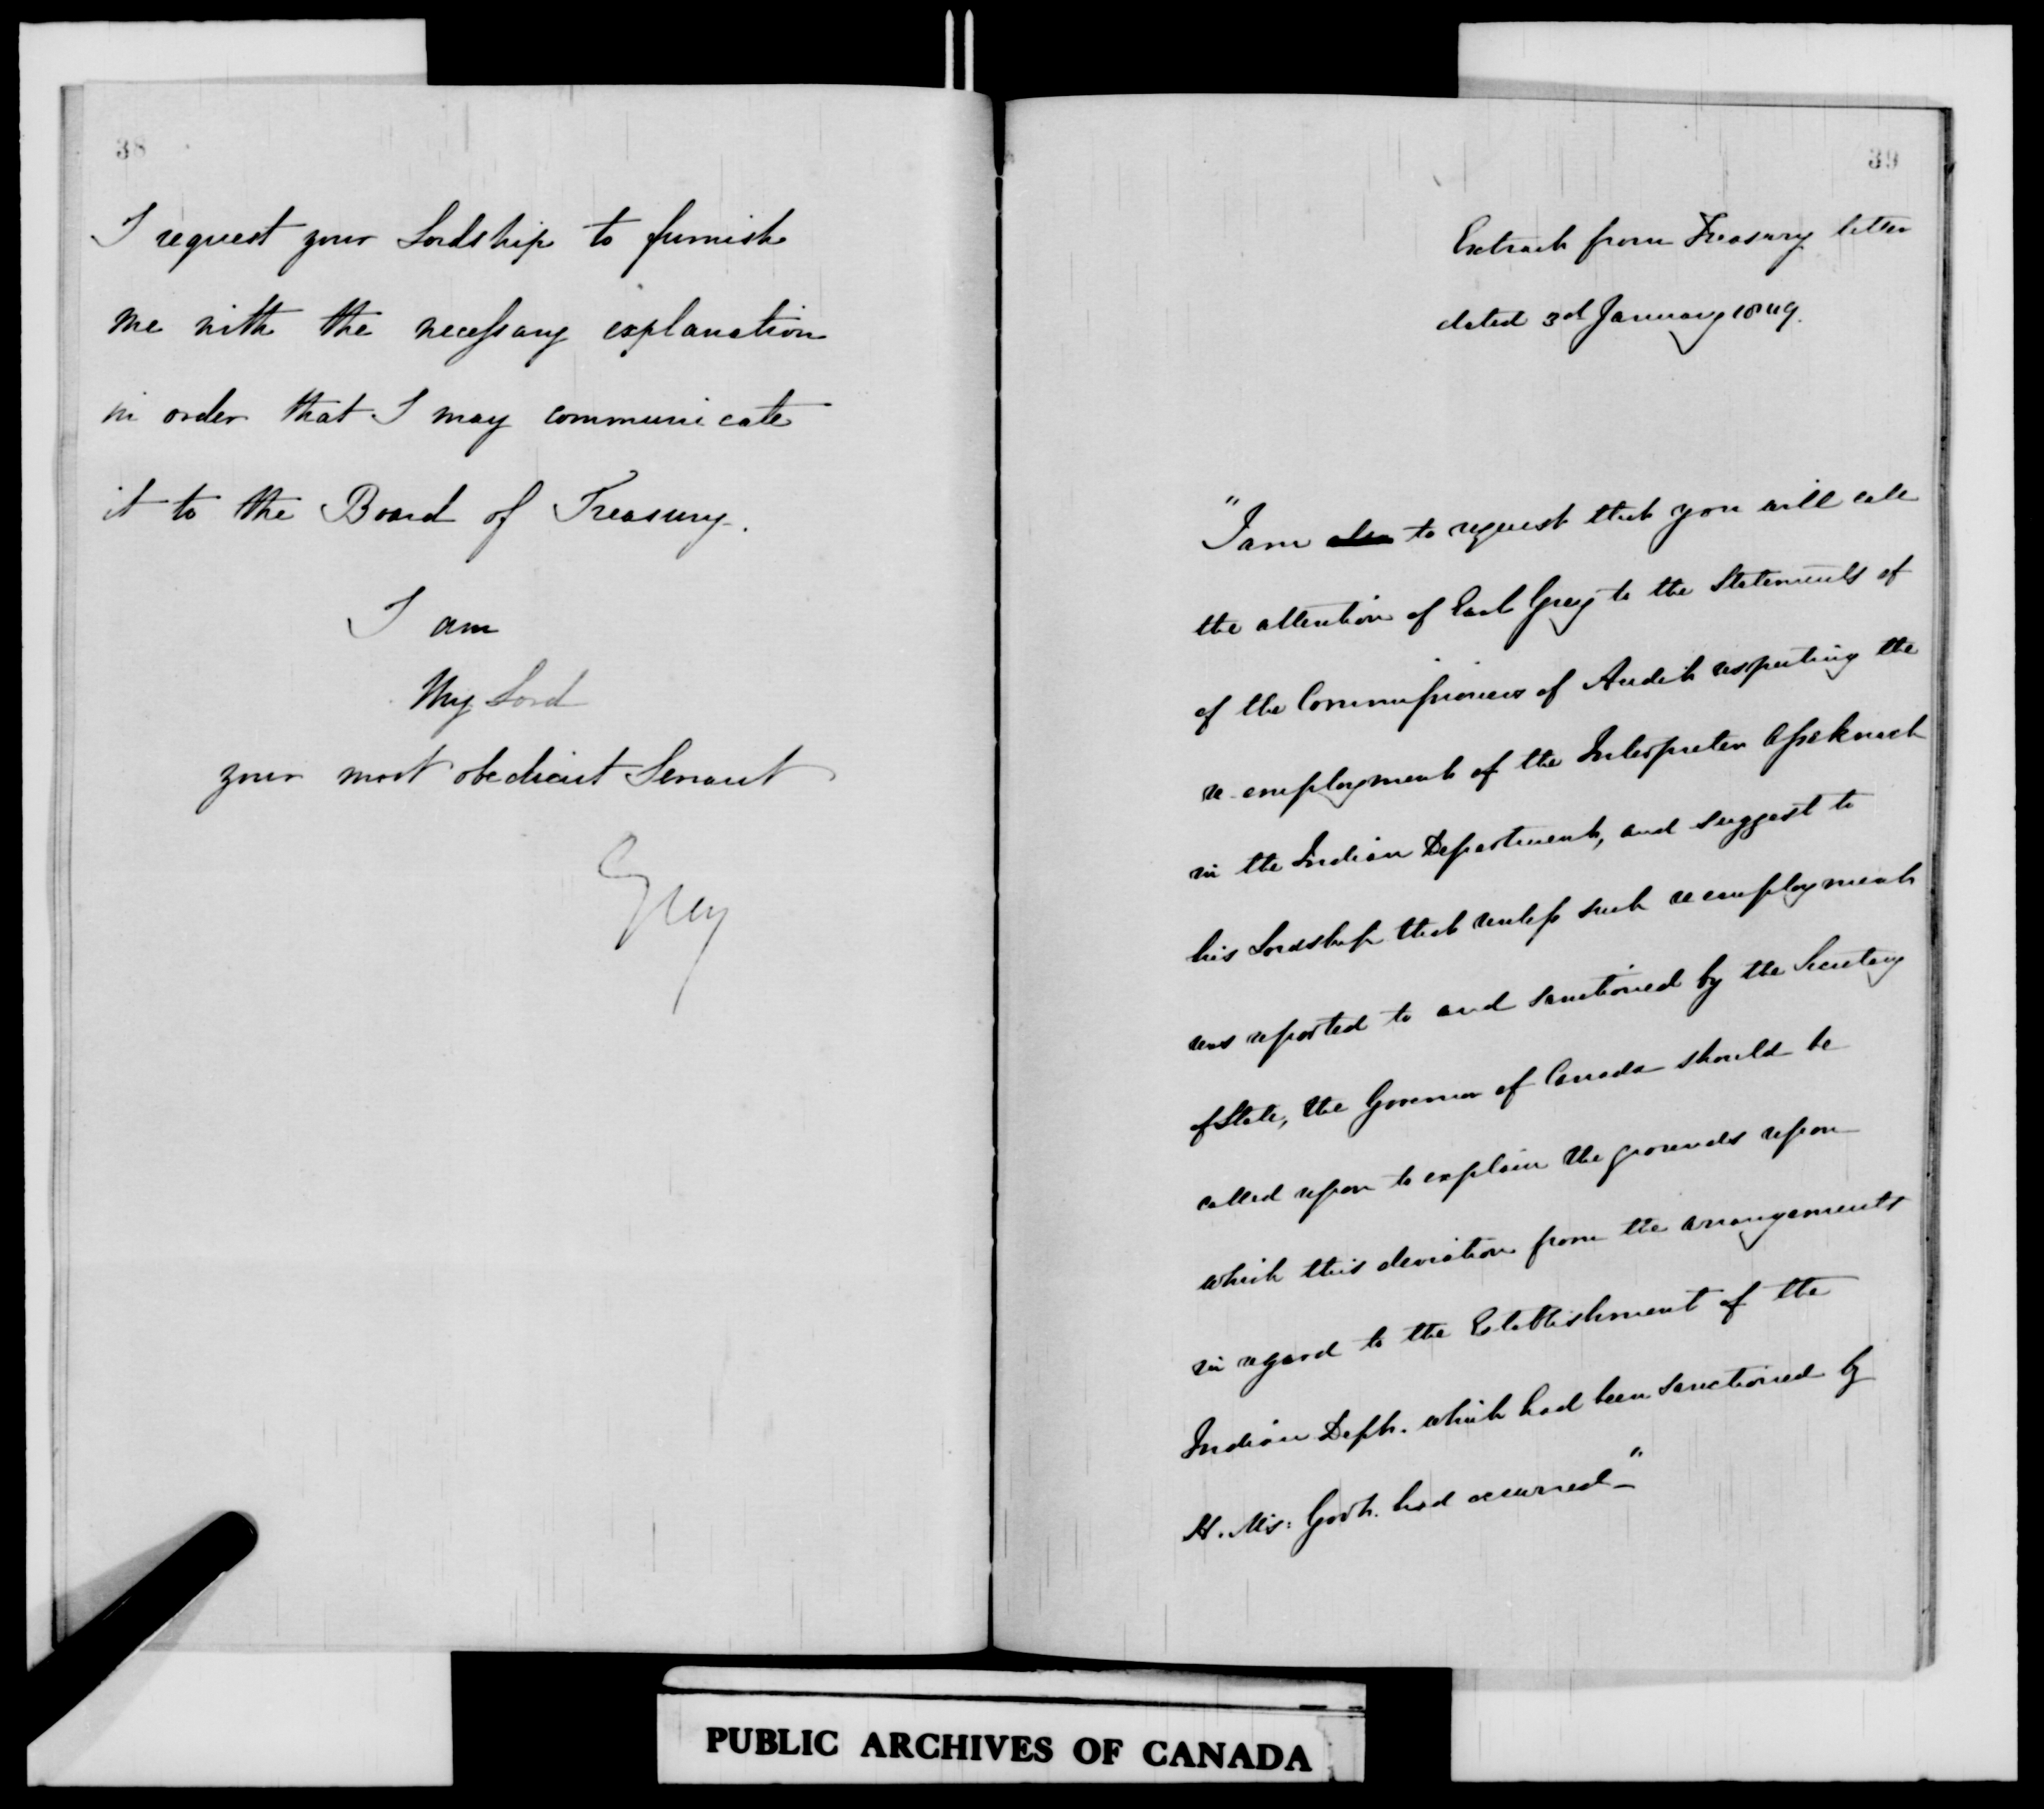 38
I request your Lordship to furnish
me with the necessary explanation
in order that I may communicate
it to the Board of Treasury.
I am
My Lord
your most obedient Servant
Grey
39
Extract from Treasury letter
dated 3d January 1849.
"I am also to request that you will call
the attention of Earl Grey to the Statements of
of the Commissioners of Audit respecting the
re-employment of the Interpreter
in the Indian Department, and suggest to
his Lordship that unless such reemployment
was reported to and sanctioned by the Secretary
of State, the Governor of Canada should be
called upon to explain the grounds upon
which this deviation from the arrangements
in regard to the Establishment of the
Indian Dept. which had been sanctioned by
H. M's: Govt. had occurred"
PUBLIC ARCHIVES OF CANADA